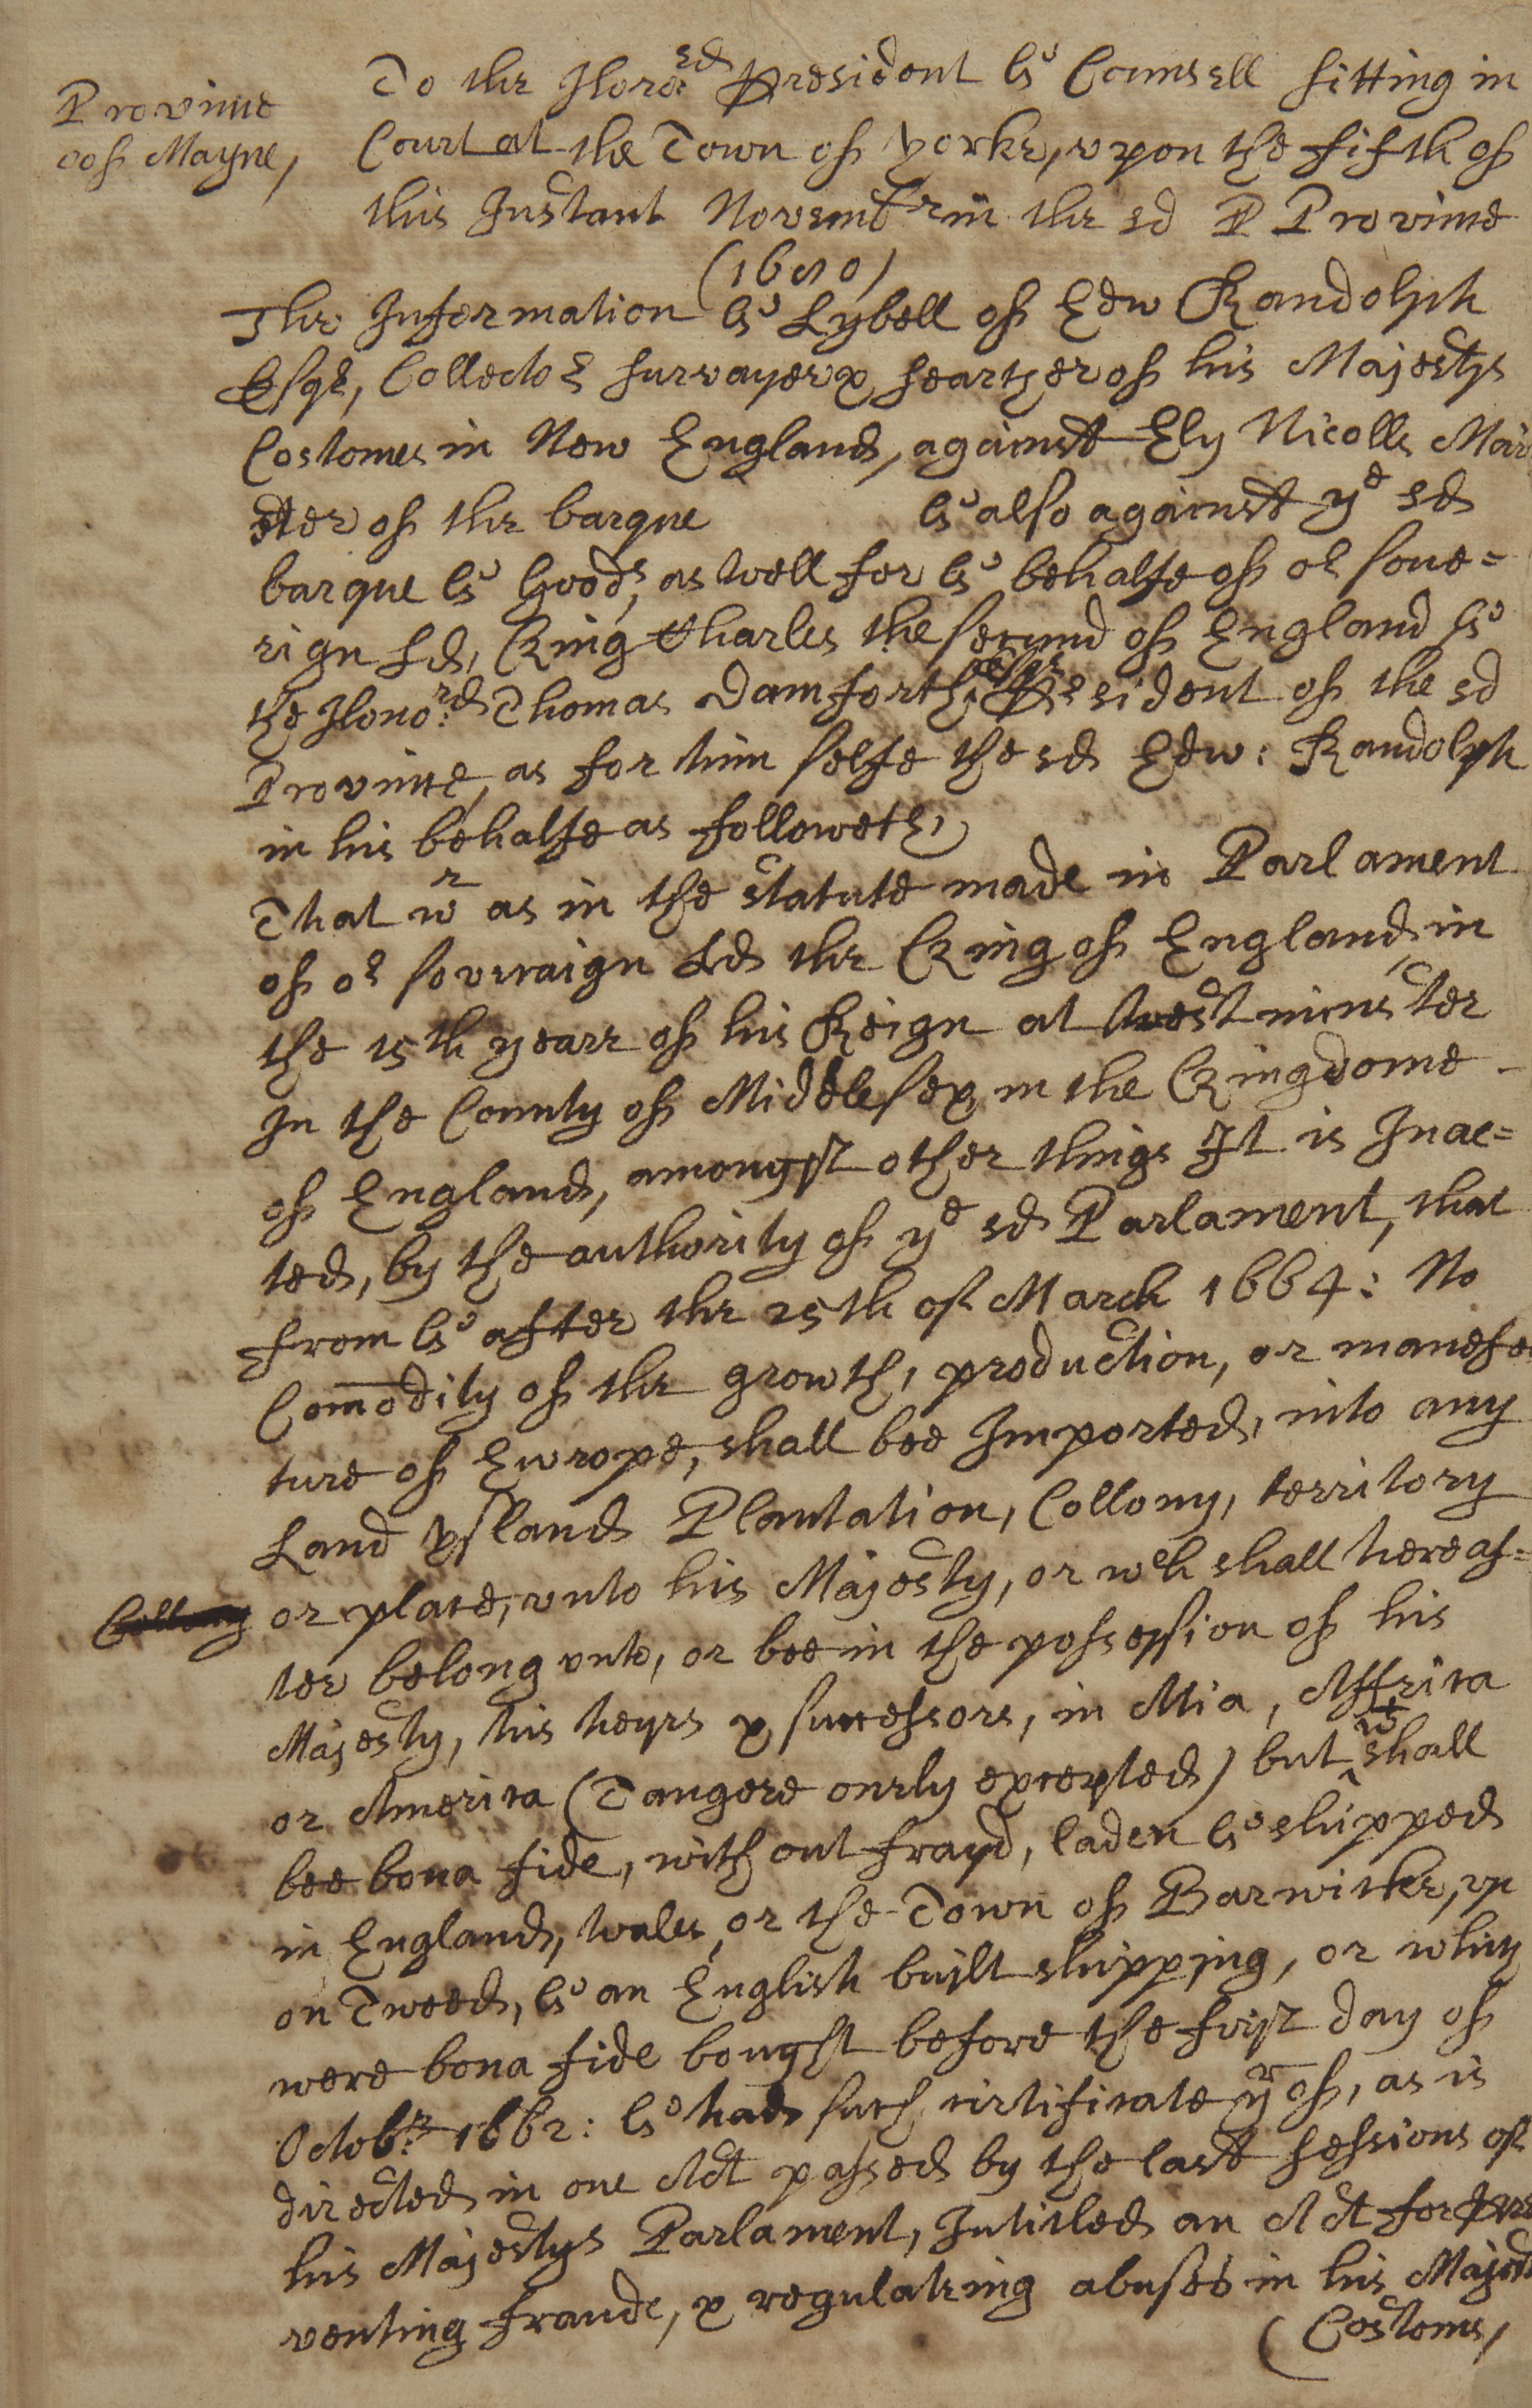 Province
of Mayne,
To the Honord President & Counsell sitting in
Court at the Town of Yorke, vpon the fifth of
this Instant Novembr in the sd Province
(1680)
The Information & Lybell of Edw Randolph
Esqr, Collector survayer & searcher of his Majestys
Costomes in New England, against Ely Nicolls Mais
ster of the barque & also against ye sd
barque & Goods, as well for & behalfe of or sove=
rign Ld, King Charles the second of England &
the Honord: Thomas Damforth, Esqr President of the sd
Province, as for him selfe the sd Edw: Randolph
in his behalfe as followeth,
That wr as in the statute made in Parlament
of or soveraign Ld the King of England, in
the 15th yeare of his Reign at Westminster
In the County of Middlesex, in the Kingdome -
of England, amongst other things It is Inac=
ted, by the authority of ye sd Parlament, that
from & after the 25th of March 1664: No
Comodity of the growth, production, or manefa
ture of Ewrope, shall bee Imported, into any
Land Ysland Plantation, Collony, territory
Collony or place, vnto his Majesty, or wch shall hereaf=
ter belong vnto, or bee in the possession of his
Majesty, his heyrs & successors, in Asia, Affrica
or America (Tangere onely excepted) but wt shall
bee bona fide, without frayd, laden & shipped
in England, Wales, or the Town of Barwicke, vp
on Tweed, & an English built shipping, or which
were bona fide bought before the first day of
Octobr: 1662: & had such certificate yr of, as is
directed in one Act passed by the last sessions of
his Majestys Parlament, Intitled an Act for pre
venting fraude, & regulateing abuses in his Majests
(Costoms,